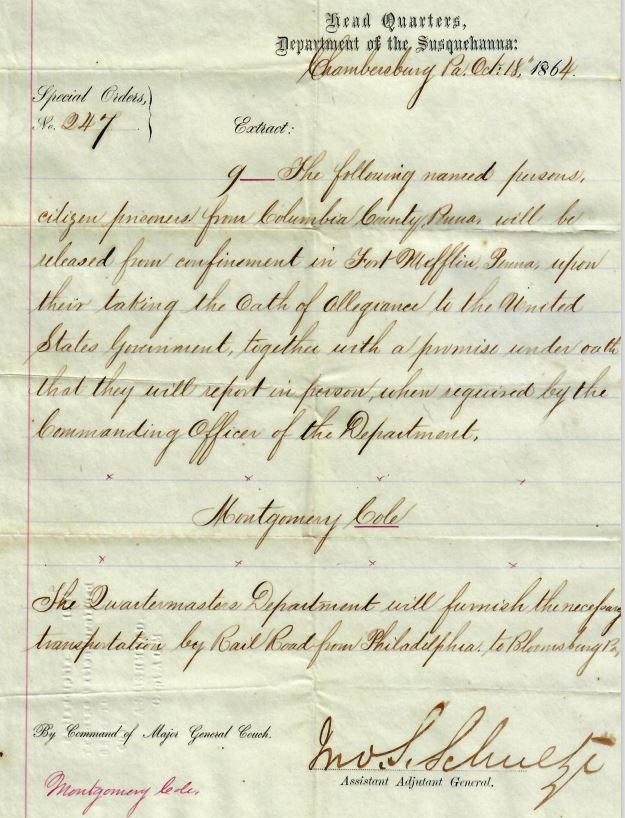 Head Quarters,
Department of the Susquehanna:
Chambersburg Pa. Oct. 18, 1864.
Special Orders,
No. 247
Extract:
9 — The following named persons,
citizen prisoners from Columbia County, Penna, will be
released from confinement in Fort Mifflin, Penna, upon
their taking the Oath of Allegiance to the United
States Government, together with a promise under oath
that they will report in person, when required by the
Commanding Officer of the Department.
x x x x
Montgomery Cole
x x x x
The Quartermasters Department will furnish the necessary
transportation by Rail Road from Philadelphia to Bloomsburg Pa,
By Command of Major General Couch.
Jno. S. Schultze
Assistant Adjutant General.
Montgomery Cole,